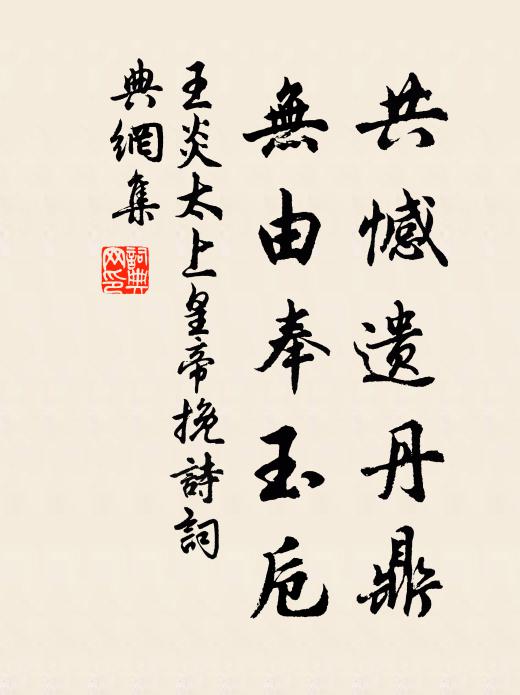 共憾遗丹鼎
無由奉玉卮
王炎太上皇帝挽詩詞
典網集
詞典
网印